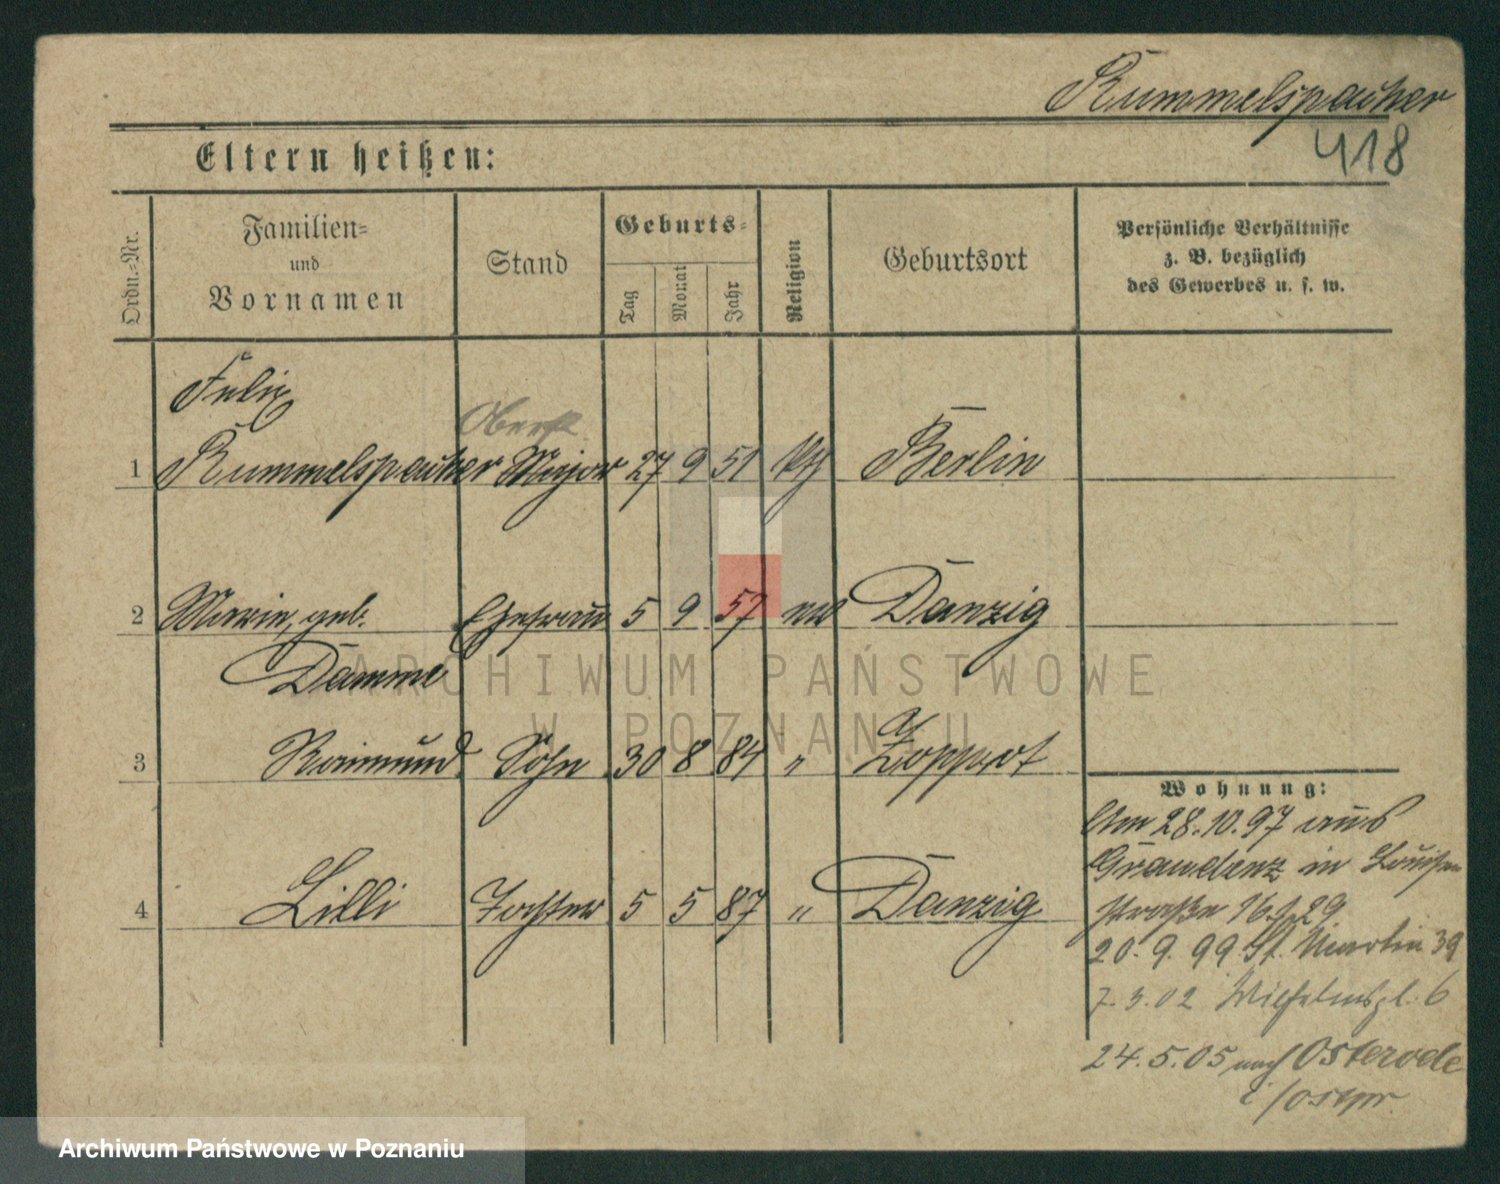 Rummelspacher
418
Eltern heißen:
Ordn.-Nr.
Familien-
und
Vornamen
Stand
Geburts-
Tag
Monat
Jahr
Religion
Geburtsort
Persönliche Verhältnisse
z. B. bezüglich
des Gewerbes u. s. w.
Felix
Oberst
1 Rummelspacher Major 27 9 51 Berlin
2 Marie, geb. Ehefrau 5 9 57 Danzig
Damme
3 Raimund Sohn 30 8 84 " Zoppot
4 Lilli Tochter 5 5 87 " Danzig
Wohnung:
Am 28.10.97 aus
Graudenz in Louisen
straße 16.
20. 9. 99 St. Martin 39
7. 3. 02 Wilhelmspl. 6
24. 5. 05 nach Osterode
i/Ostpr.
ARCHIWUM PAŃSTWOWE
W POZNANIU
Archiwum Państwowe w Poznaniu